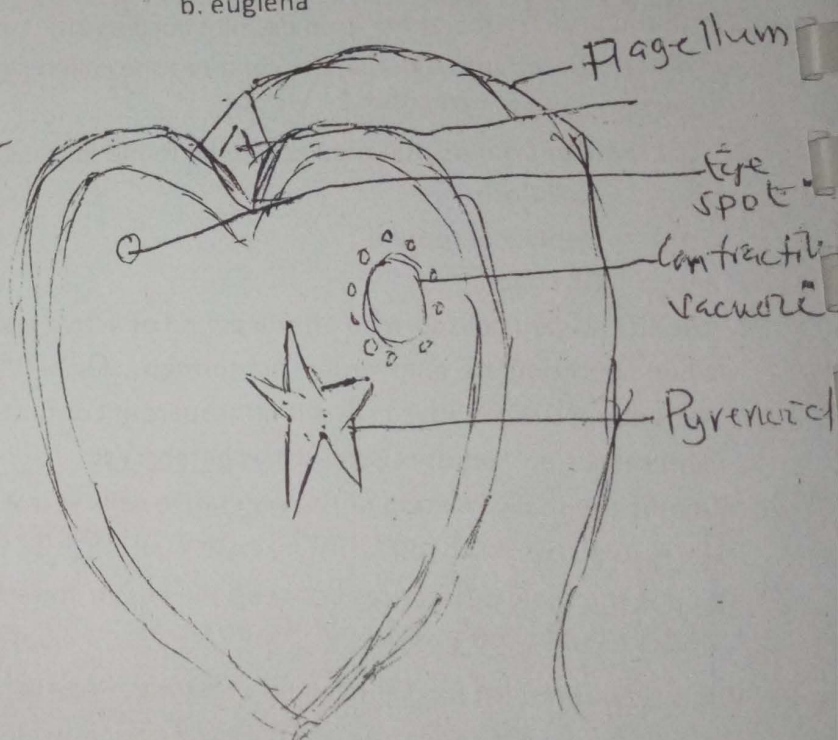 b. euglena
Flagellum
Eye
spot.
Contractile
vacuole
Pyrenoid